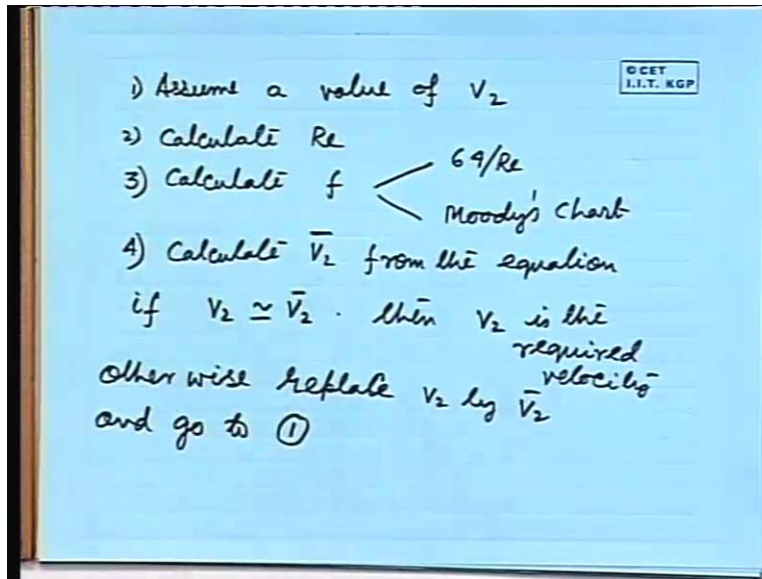 ©CET
I.I.T. KGP
1) Assume a value of V₂
2) Calculate Re
3) Calculate f
64/Re
Moody's Chart
4) Calculate V̄₂ from the equation
if V₂ ≃ V̄₂ . then V₂ is the
required
velocity
otherwise replace V₂ by V̄₂
and go to ①